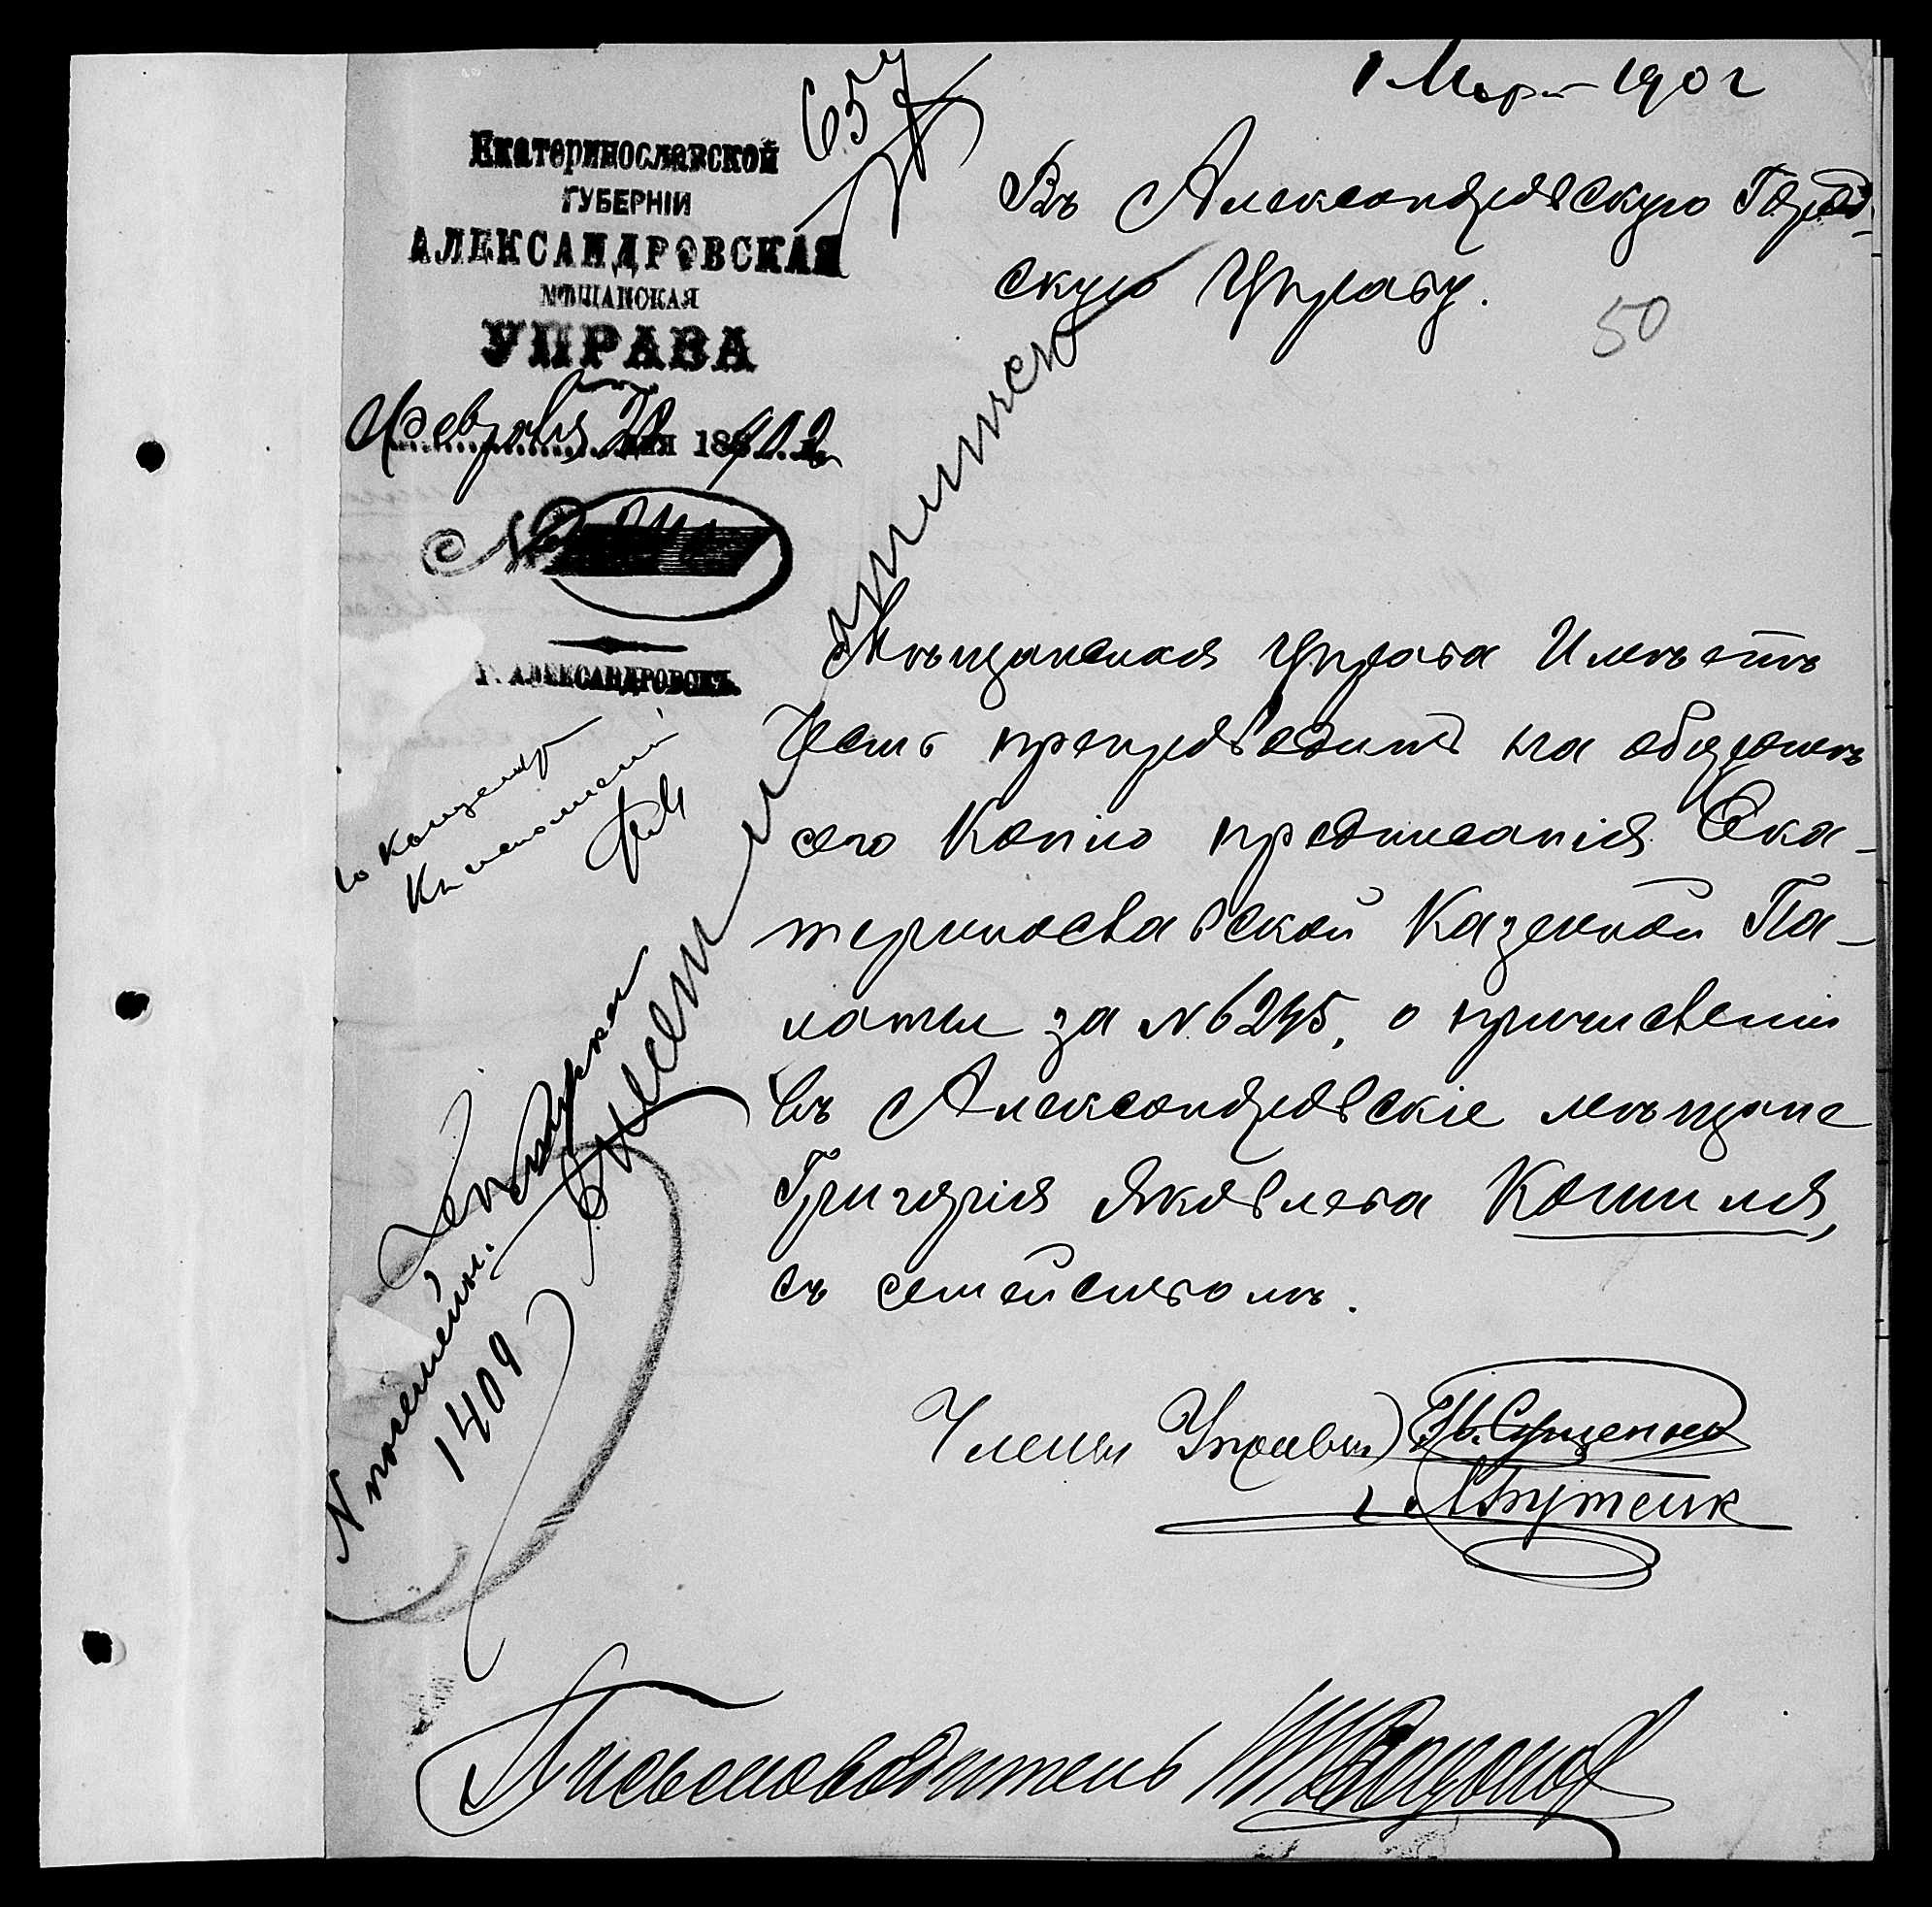 657
1 Мар. 1902
Екатеринославской
ГУБЕРНІИ
АЛЕКСАНДРОВСКАЯ
МѢЩАНСКАЯ
УПРАВА
Февраля 28 дня 1902 г.
№
Г. АЛЕКСАНДРОВСКЪ.
Въ Александровскую Город-
скую Управу.
50
Мѣщанская Управа Имѣетъ
Честь препроводить на оборотѣ
сего Копію предписанія Ека-
теринославской Казенной Па-
латы за № 6245, о причисленіи
въ Александровскіе мѣщане
Григорія Яковлева Кошиля,
съ семействомъ.
къ исполненію
N посемейн.
1409
Члены Управы
Письмоводитель